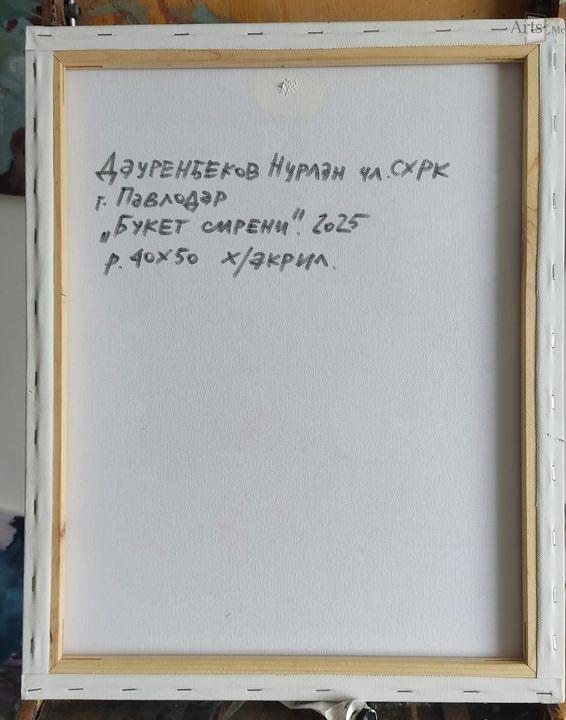 Arts.Me
Дауренбеков Нурлан чл. СХРК
г. Павлодар
„Букет сирени". 2025
р. 40х50 х/акрил.